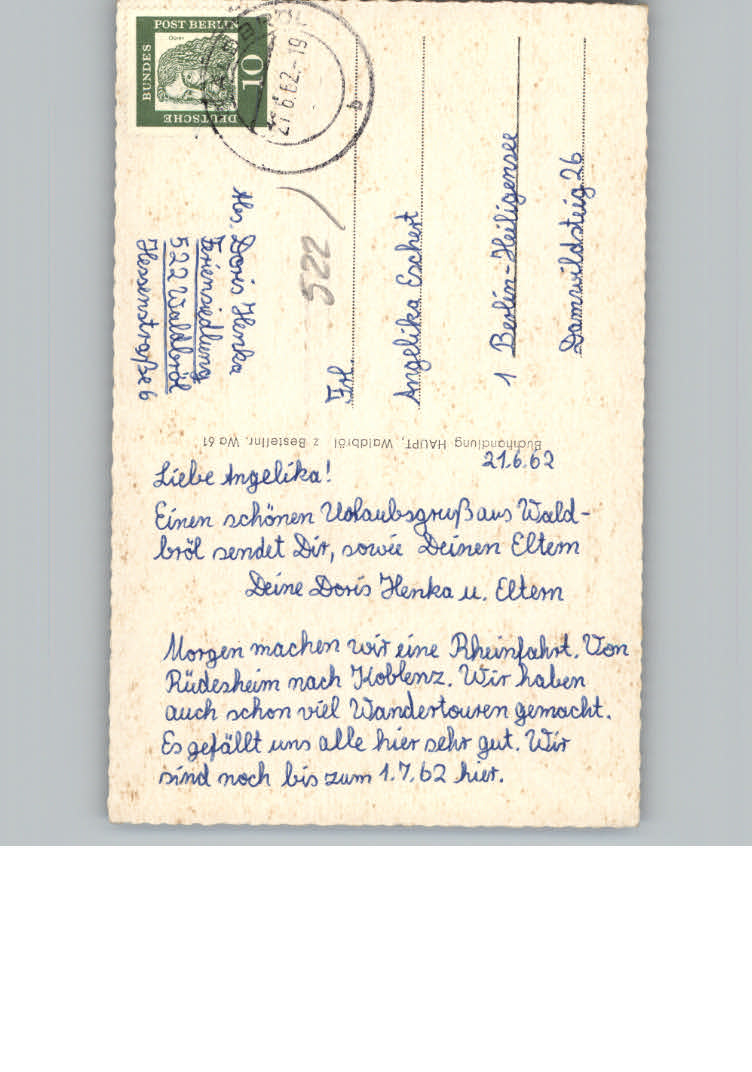 DEUTSCHE
BUNDES
POST BERLIN
Dürer
10
21.6.62.-19
b
522
Abs. Doris Henka
Feriensiedlung
522 Waldbröl
Hessenstraße 6
Frl.
Angelika Eschert
1 Berlin-Heiligensee
Damwildsteig 26
Buchhandlung HAUPT, Waldbröl z Bestellnr. Wa 61
21.6.62
Liebe Angelika!
Einen schönen Urlaubsgruß aus Wald-
bröl sendet Dir, sowie Deinen Eltern
Deine Doris Henka u. Eltern
Morgen machen wir eine Rheinfahrt. Von
Rüdesheim nach Koblenz. Wir haben
auch schon viel Wandertouren gemacht.
Es gefällt uns alle hier sehr gut. Wir
sind noch bis zum 1.7.62 hier.